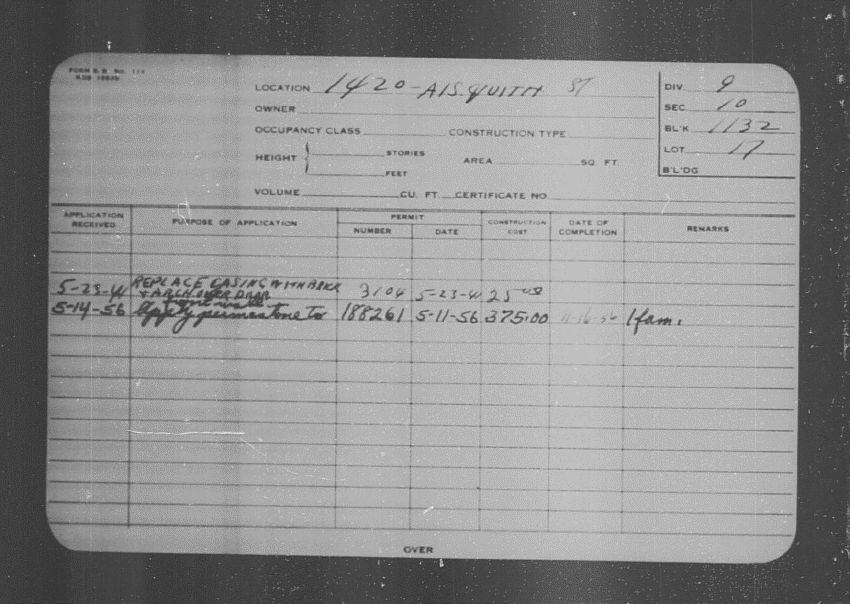 FORM B. B. No. 114
LOCATION 1420-AISQUITH ST
DIV. 9
OWNER
SEC. 10
OCCUPANCY CLASS CONSTRUCTION TYPE
BL'K 1132
HEIGHT { STORIES AREA SQ. FT.
FEET
LOT 17
B'L'DG
VOLUME CU. FT. CERTIFICATE NO.
APPLICATION RECEIVED PURPOSE OF APPLICATION PERMIT NUMBER DATE CONSTRUCTION COST DATE OF COMPLETION REMARKS
5-23-41 REPLACE CASING WITH BRICK 3104 5-23-41 25 00
& ARCH OVER DOOR
5-14-56 Apply permastone to 188261 5-11-56 375.00 11-16-56 1 fam.
OVER